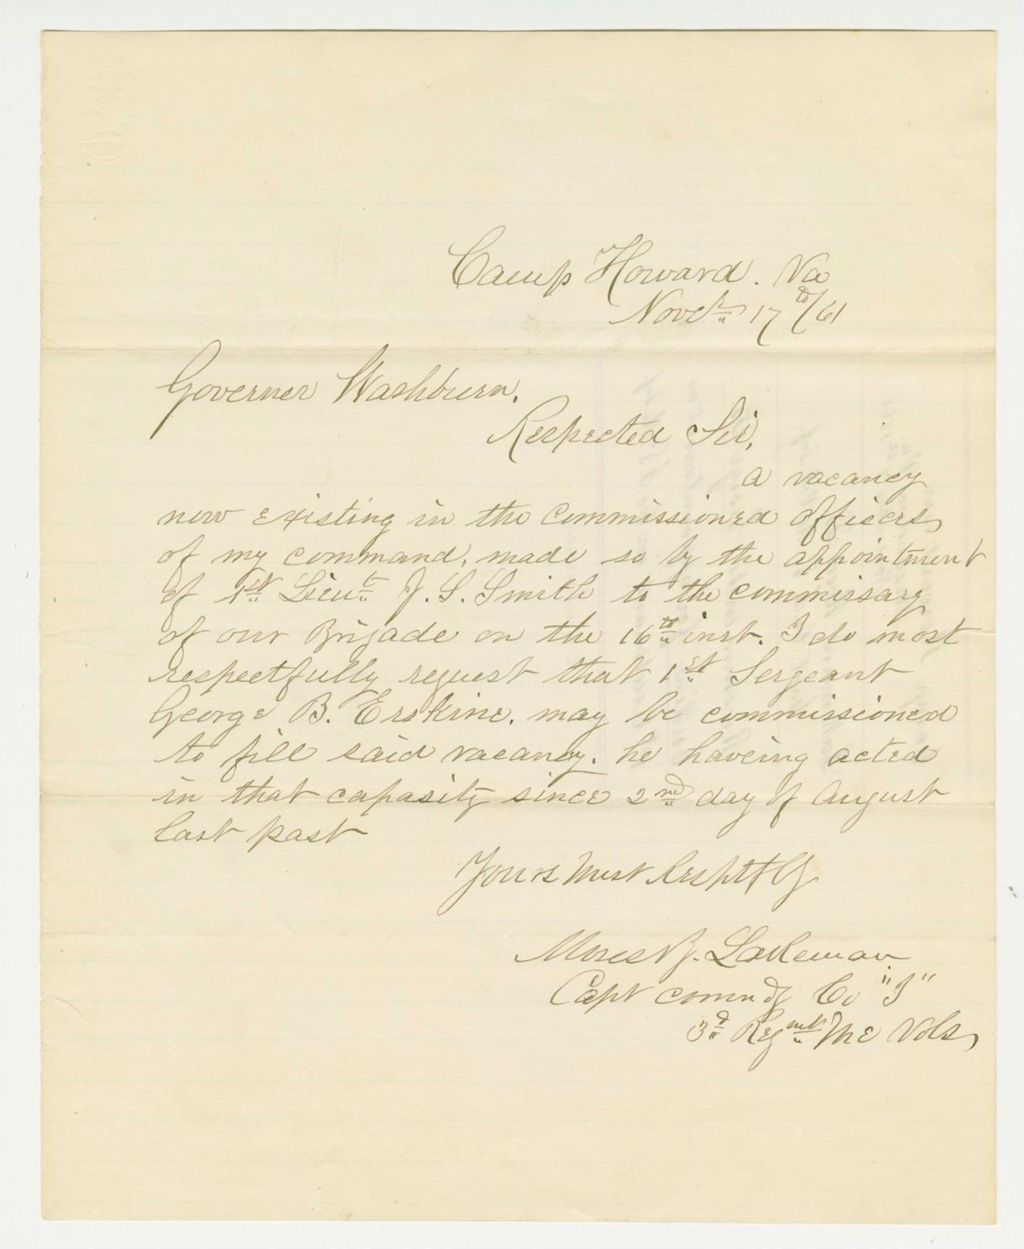 Camp Howard. Va
Novch 17th/61
Governer Washburn.
Respected Sir,
A vacancy
now existing in the Commissioned officers
of my command, made so by the appointment
of 1st Lieut J. S. Smith to the commissary
of our Brigade on the 16th inst. I do most
respectfully request that 1st Sergeant
George B. Erskine. may be commissioned
to fill said vacancy. he haveing acted
in that capasity since 2nd day of August
last past
Yours Most Resptfly
Moses B. Lakeman
Capt comndg Co "I"
3d Regmt Me Vols,